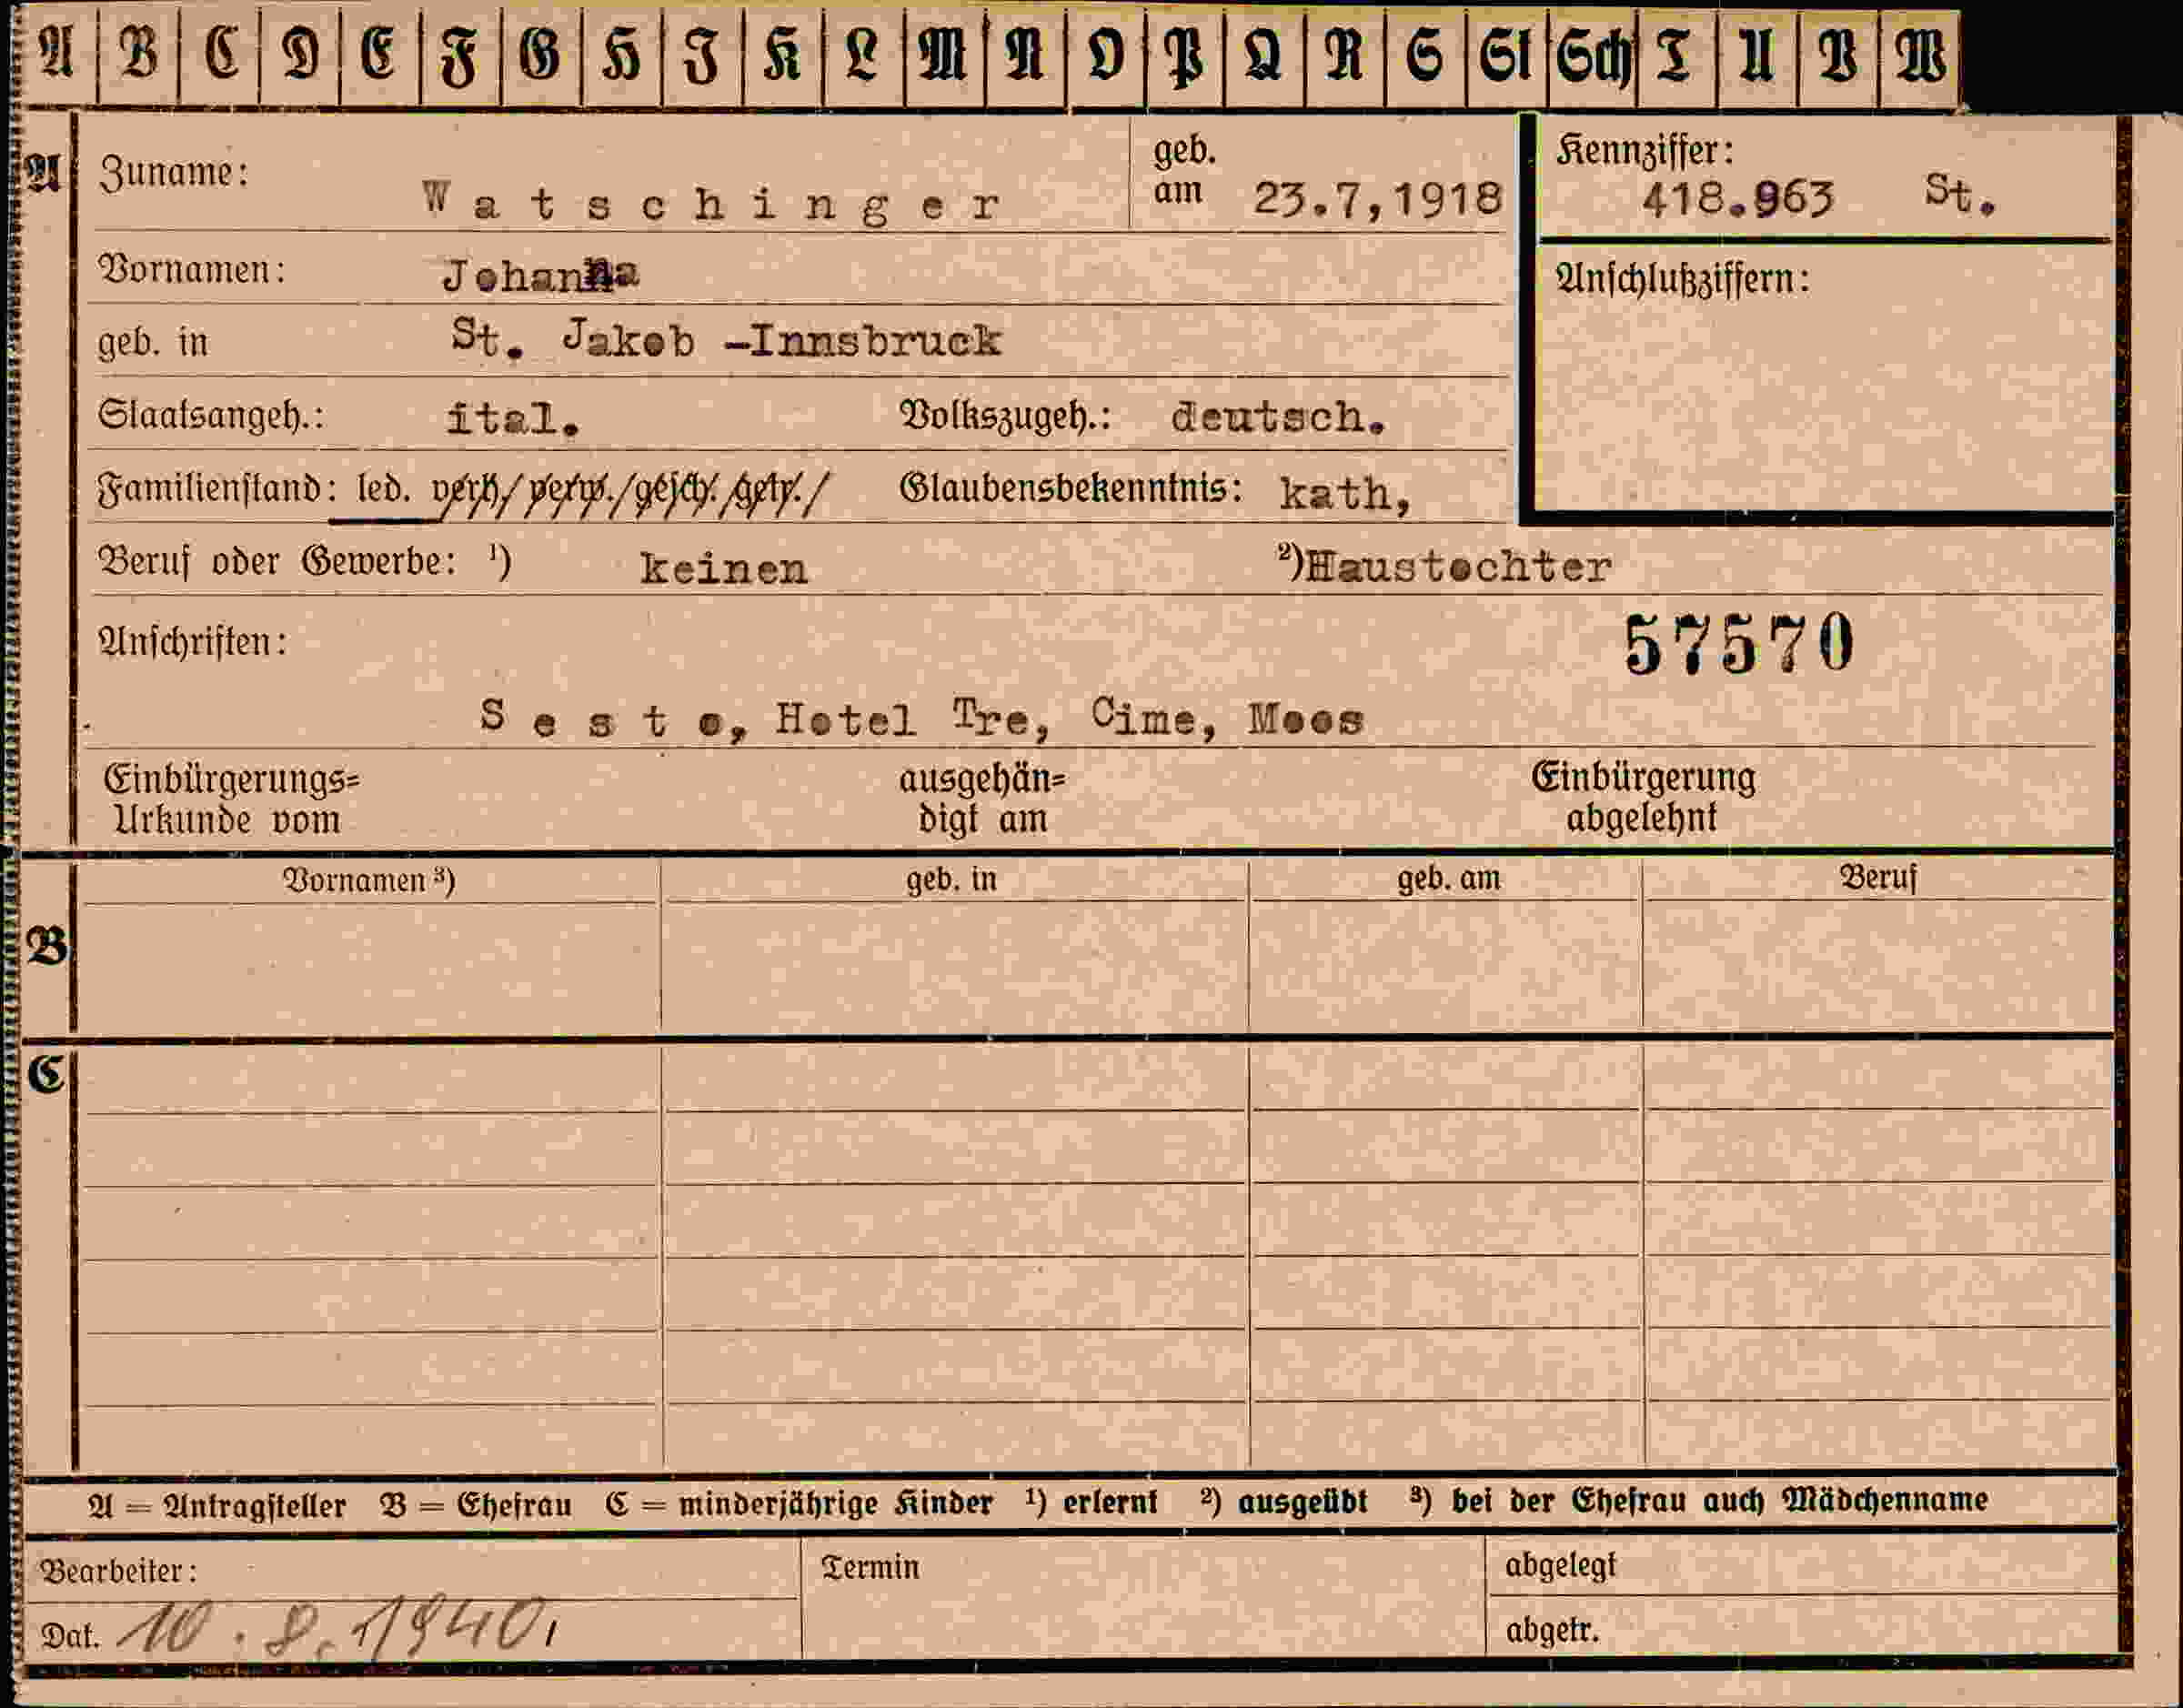 A B C D E F G H J K L M N O P Q R S St Sch T U V W
A Zuname: Watschinger geb. am 23.7,1918 Kennziffer: 418.963 St.
Vornamen: Johanna Anschlußziffern:
geb. in St. Jakob -Innsbruck
Staatsangeh.: ital. Volkszugeh.: deutsch.
Familienstand: led. verh./verw./gesch./getr./ Glaubensbekenntnis: kath,
Beruf oder Gewerbe: ¹) keinen ²)Haustochter
Anschriften: 57570
Sesto, Hotel Tre, Cime, Moos
Einbürgerungs= ausgehän= Einbürgerung
Urkunde vom digt am abgelehnt
Vornamen ³) geb. in geb. am Beruf
B
C
A = Antragsteller B = Ehefrau C = minderjährige Kinder ¹) erlernt ²) ausgeübt ³) bei der Ehefrau auch Mädchenname
Bearbeiter: Termin abgelegt
Dat. 10.8.1940, abgetr.